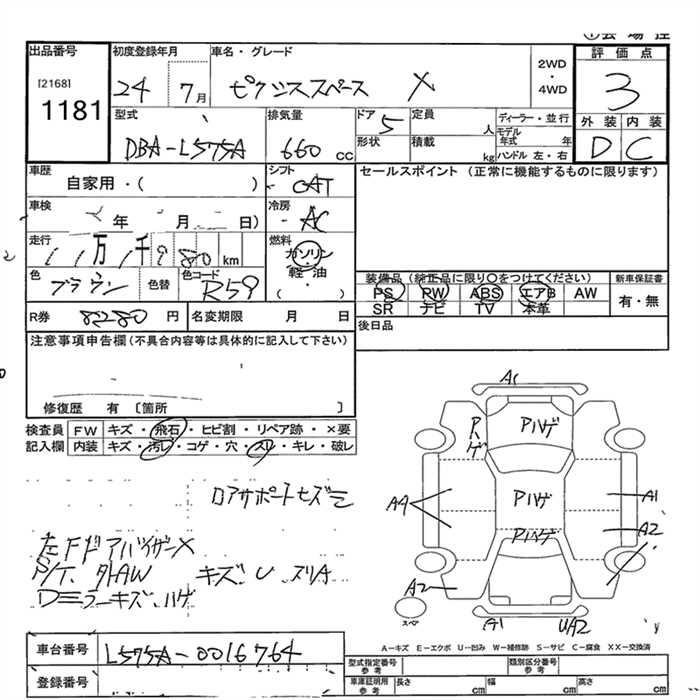 ①会場控
出品番号 初度登録年月 車名・グレード 2WD・4WD 評価点
[2168] 1181 24 7月 ピクシススペース X 3
型式 排気量 ドア 定員 ディーラー・並行 外装 内装
DBA-L575A 660cc 5 人 モデル年式 年 D C
形状 積載 kg ハンドル 左・右
車歴 シフト セールスポイント(正常に機能するものに限ります)
自家用・( ) CAT
車検 年 月 日) 冷房 AC
走行 万 千 km 燃料 ガソリン・軽油・( )
色 ブラウン 色替 色コード R59
装備品(純正品に限り○をつけてください) 新車保証書
PS PW ABS エアB AW 有・無
SR ナビ TV 本革
R券 82280円 名変期限 月 日 後日品
注意事項申告欄(不具合内容等は具体的に記入して下さい)
修復歴 有 〔箇所 〕
検査員記入欄 FW キズ・飛石・ヒビ割・リペア跡・×要
内装 キズ・汚レ・コゲ・穴・スレ・キレ・破レ
A1
Pハゲ
Rハゲ
Pハゲ
Pハゲ
A4 A1
A2
A2
スペア A1 UA2
ロアサポートセズミ
左Fドアバイザー×
P/T. 外AW キズ U スリA
Dミラーキズ、ハゲ
車台番号 L575A-0016764
登録番号
A-キズ E-エクボ U-凹み W-補修跡 S-サビ C-腐食 XX-交換済
型式指定番号 参考 類別区分番号 参考
車庫証明用 参考 長さ cm 幅 cm 高さ cm